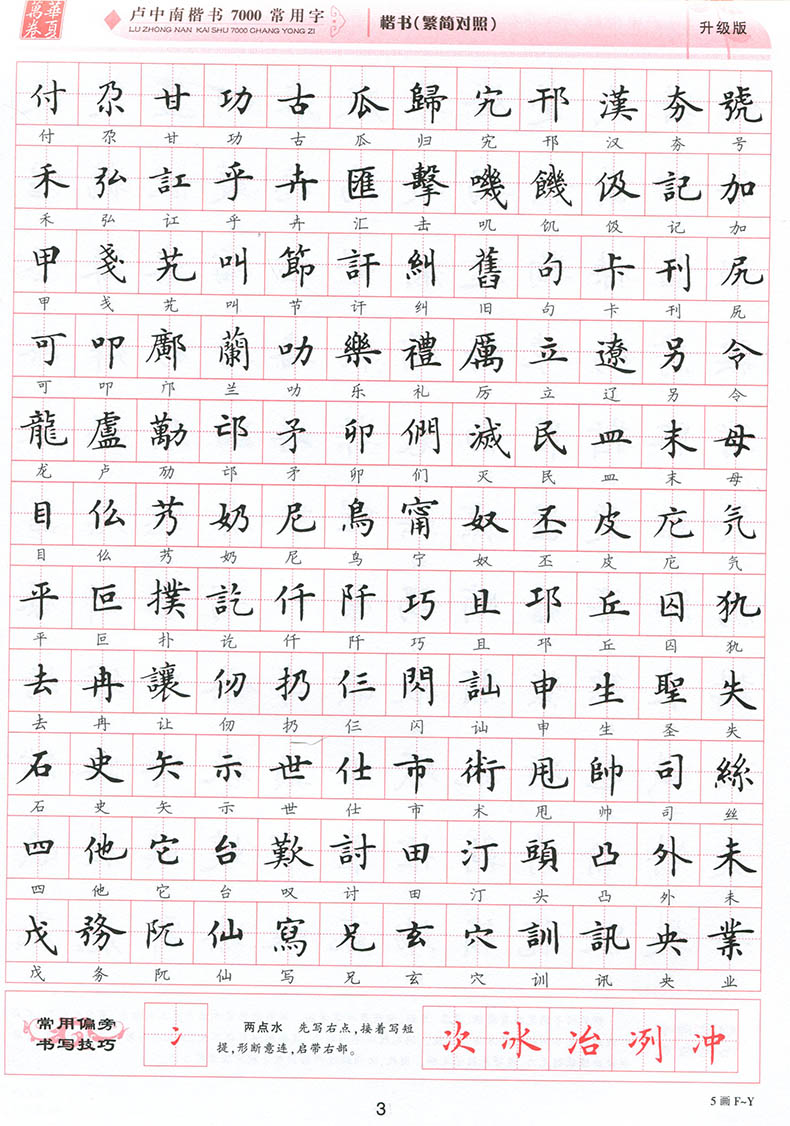 華夏萬卷
卢中南楷书 7000 常用字
LU ZHONG NAN KAI SHU 7000 CHANG YONG ZI
楷书(繁简对照)
升级版
付 尕 甘 功 古 瓜 歸 宄 邗 漢 夯 號
付 尕 甘 功 古 瓜 归 宄 邗 汉 夯 号
禾 弘 訌 乎 卉 匯 擊 嘰 饑 伋 記 加
禾 弘 讧 乎 卉 汇 击 叽 饥 伋 记 加
甲 戔 艽 叫 節 訐 糾 舊 句 卡 刊 尻
甲 戋 艽 叫 节 讦 纠 旧 句 卡 刊 尻
可 叩 鄺 蘭 叻 樂 禮 厲 立 遼 另 令
可 叩 邝 兰 叻 乐 礼 厉 立 辽 另 令
龍 盧 勱 邙 矛 卯 們 滅 民 皿 末 母
龙 卢 劢 邙 矛 卯 们 灭 民 皿 末 母
目 仫 艿 奶 尼 鳥 甯 奴 丕 皮 庀 氕
目 仫 艿 奶 尼 鸟 宁 奴 丕 皮 庀 氕
平 叵 撲 訖 仟 阡 巧 且 邛 丘 囚 犰
平 叵 扑 讫 仟 阡 巧 且 邛 丘 囚 犰
去 冉 讓 仞 扔 仨 閃 訕 申 生 聖 失
去 冉 让 仞 扔 仨 闪 讪 申 生 圣 失
石 史 矢 示 世 仕 市 術 甩 帥 司 絲
石 史 矢 示 世 仕 市 术 甩 帅 司 丝
四 他 它 台 歎 討 田 汀 頭 凸 外 未
四 他 它 台 叹 讨 田 汀 头 凸 外 未
戊 務 阢 仙 寫 兄 玄 穴 訓 訊 央 業
戊 务 阢 仙 写 兄 玄 穴 训 讯 央 业
常用偏旁
书写技巧
冫
两点水 先写右点,接着写短
提,形断意连,启带右部。
次 冰 冶 冽 冲
3
5 画 F~Y